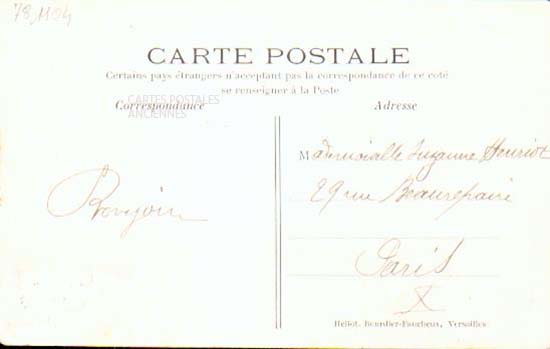 78 1104
CARTE POSTALE
Certains pays étrangers n'acceptant pas la correspondance de ce coté
se renseigner à la Poste
CARTES POSTALES
ANCIENNES
Correspondance
Adresse
Mademoiselle Suzanne Houriot
29 rue Beaurepaire
Paris
X
Bonjour
Héliot, Bourdier-Faucheux, Versailles